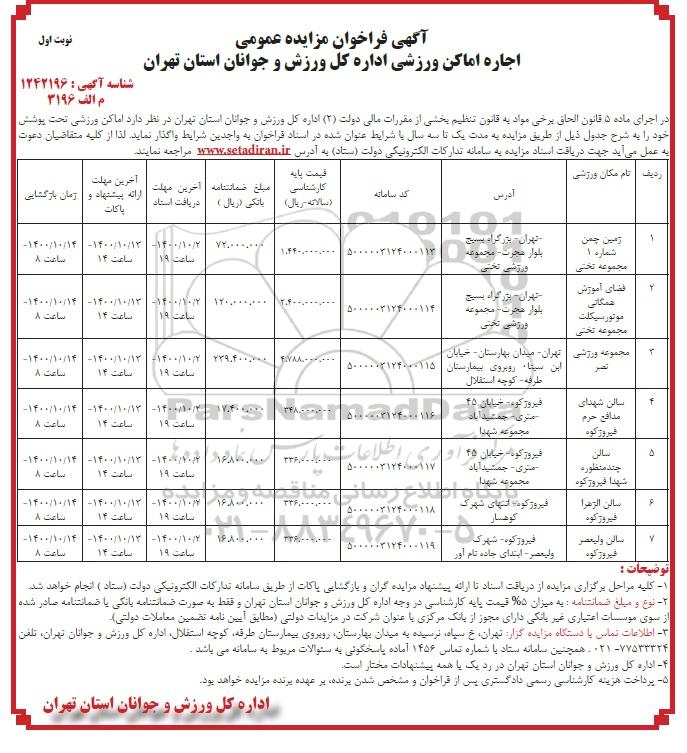 آگهی فراخوان مزایده عمومی
نوبت اول
اجاره اماکن ورزشی اداره کل ورزش و جوانان استان تهران
شناسه آگهی : ۱۲۴۲۱۹۶
م الف ۳۱۹۶
در اجرای ماده ۵ قانون الحاق برخی مواد به قانون تنظیم بخشی از مقررات مالی دولت (۲) اداره کل ورزش و جوانان استان تهران در نظر دارد اماکن ورزشی تحت پوشش
خود را به شرح جدول ذیل از طریق مزایده به مدت یک تا سه سال با شرایط عنوان شده در اسناد فراخوان به واجدین شرایط واگذار نماید. لذا از کلیه متقاضیان دعوت
به عمل می‌آید جهت دریافت اسناد مزایده به سامانه تدارکات الکترونیکی دولت (ستاد) به آدرس www.setadiran.ir مراجعه نمایند.
ردیف | نام مکان ورزشی | آدرس | کد سامانه | قیمت پایه کارشناسی (سالانه-ریال) | مبلغ ضمانتنامه بانکی (ریال) | آخرین مهلت دریافت اسناد | آخرین مهلت ارائه پیشنهاد و پاکات | زمان بازگشایی
۱ | زمین چمن شماره ۱ مجموعه تختی | -تهران- بزرگراه بسیج بلوار هجرت- مجموعه ورزشی تختی | ۵۰۰۰۰۰۳۱۲۴۰۰۰۱۱۳ | ۱.۴۴۰.۰۰۰.۰۰۰ | ۷۲.۰۰۰.۰۰۰ | ۱۴۰۰/۱۰/۲- ساعت ۱۹ | ۱۴۰۰/۱۰/۱۳- ساعت ۱۴ | ۱۴۰۰/۱۰/۱۴- ساعت ۸
۲ | فضای آموزش همگانی موتورسیکلت مجموعه تختی | -تهران- بزرگراه بسیج بلوار هجرت- مجموعه ورزشی تختی | ۵۰۰۰۰۰۳۱۲۴۰۰۰۱۱۴ | ۲.۴۰۰.۰۰۰.۰۰۰ | ۱۲۰.۰۰۰.۰۰۰ | ۱۴۰۰/۱۰/۲- ساعت ۱۹ | ۱۴۰۰/۱۰/۱۳- ساعت ۱۴ | ۱۴۰۰/۱۰/۱۴- ساعت ۸
۳ | مجموعه ورزشی نصر | تهران- میدان بهارستان- خیابان ابن سینا- روبروی بیمارستان طرفه- کوچه استقلال | ۵۰۰۰۰۰۳۱۲۴۰۰۰۱۱۵ | ۴.۷۸۸.۰۰۰.۰۰۰ | ۲۳۹.۴۰۰.۰۰۰ | ۱۴۰۰/۱۰/۲- ساعت ۱۹ | ۱۴۰۰/۱۰/۱۳- ساعت ۱۴ | ۱۴۰۰/۱۰/۱۴- ساعت ۸
۴ | سالن شهدای مدافع حرم فیروزکوه | فیروزکوه- خیابان ۴۵ -متری- جمشیدآباد مجموعه شهدا | ۵۰۰۰۰۰۳۱۲۴۰۰۰۱۱۶ | ۳۴۸.۰۰۰.۰۰۰ | ۱۷.۴۰۰.۰۰۰ | ۱۴۰۰/۱۰/۲- ساعت ۱۹ | ۱۴۰۰/۱۰/۱۳- ساعت ۱۴ | ۱۴۰۰/۱۰/۱۴- ساعت ۸
۵ | سالن چندمنظوره شهدا فیروزکوه | فیروزکوه- خیابان ۴۵ -متری- جمشیدآباد مجموعه شهدا | ۵۰۰۰۰۰۳۱۲۴۰۰۰۱۱۷ | ۳۳۶.۰۰۰.۰۰۰ | ۱۶.۸۰۰.۰۰۰ | ۱۴۰۰/۱۰/۲- ساعت ۱۹ | ۱۴۰۰/۱۰/۱۳- ساعت ۱۴ | ۱۴۰۰/۱۰/۱۴- ساعت ۸
۶ | سالن الزهرا فیروزکوه | فیروزکوه- انتهای شهرک کوهسار | ۵۰۰۰۰۰۳۱۲۴۰۰۰۱۱۸ | ۳۳۶.۰۰۰.۰۰۰ | ۱۶.۸۰۰.۰۰۰ | ۱۴۰۰/۱۰/۲- ساعت ۱۹ | ۱۴۰۰/۱۰/۱۳- ساعت ۱۴ | ۱۴۰۰/۱۰/۱۴- ساعت ۸
۷ | سالن ولیعصر فیروزکوه | فیروزکوه- شهرک ولیعصر- ابتدای جاده نام آور | ۵۰۰۰۰۰۳۱۲۴۰۰۰۱۱۹ | ۳۳۶.۰۰۰.۰۰۰ | ۱۶.۸۰۰.۰۰۰ | ۱۴۰۰/۱۰/۲- ساعت ۱۹ | ۱۴۰۰/۱۰/۱۳- ساعت ۱۴ | ۱۴۰۰/۱۰/۱۴- ساعت ۸
ParsNamadData
پایگاه اطلاع رسانی مناقصه و مزایده
۰۲۱-۸۸۳۴۹۶۷۰-۵
توضیحات :
۱- کلیه مراحل برگزاری مزایده از دریافت اسناد تا ارائه پیشنهاد مزایده گران و بازگشایی پاکات از طریق سامانه تدارکات الکترونیکی دولت (ستاد ) انجام خواهد شد.
۲- نوع و مبلغ ضمانتنامه : به میزان ۵% قیمت پایه کارشناسی در وجه اداره کل ورزش و جوانان استان تهران و فقط به صورت ضمانتنامه بانکی یا ضمانتنامه صادر شده
از سوی موسسات اعتباری غیر بانکی دارای مجوز از بانک مرکزی با عنوان شرکت در مزایدات دولتی (مطابق آیین نامه تضمین معاملات دولتی).
۳- اطلاعات تماس با دستگاه مزایده گزار: تهران، خ سپاه، نرسیده به میدان بهارستان، روبروی بیمارستان طرفه، کوچه استقلال، اداره کل ورزش و جوانان تهران، تلفن
۷۷۵۳۳۳۲۴- ۰۲۱ . همچنین سامانه ستاد با شماره تماس ۱۴۵۶ آماده پاسخگوئی به سئوالات مربوط به سامانه می باشد .
۴- اداره کل ورزش و جوانان استان تهران در رد یک یا همه پیشنهادات مختار است.
۵- پرداخت هزینه کارشناسی رسمی دادگستری پس از فراخوان و مشخص شدن برنده، بر عهده برنده مزایده خواهد بود.
اداره کل ورزش و جوانان استان تهران